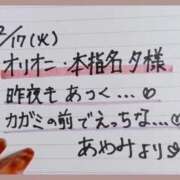 2/17(火)
オリオニ・本指名夕様
昨夜もあつく…♡
カガミの前でえっちな…♡
あやみより